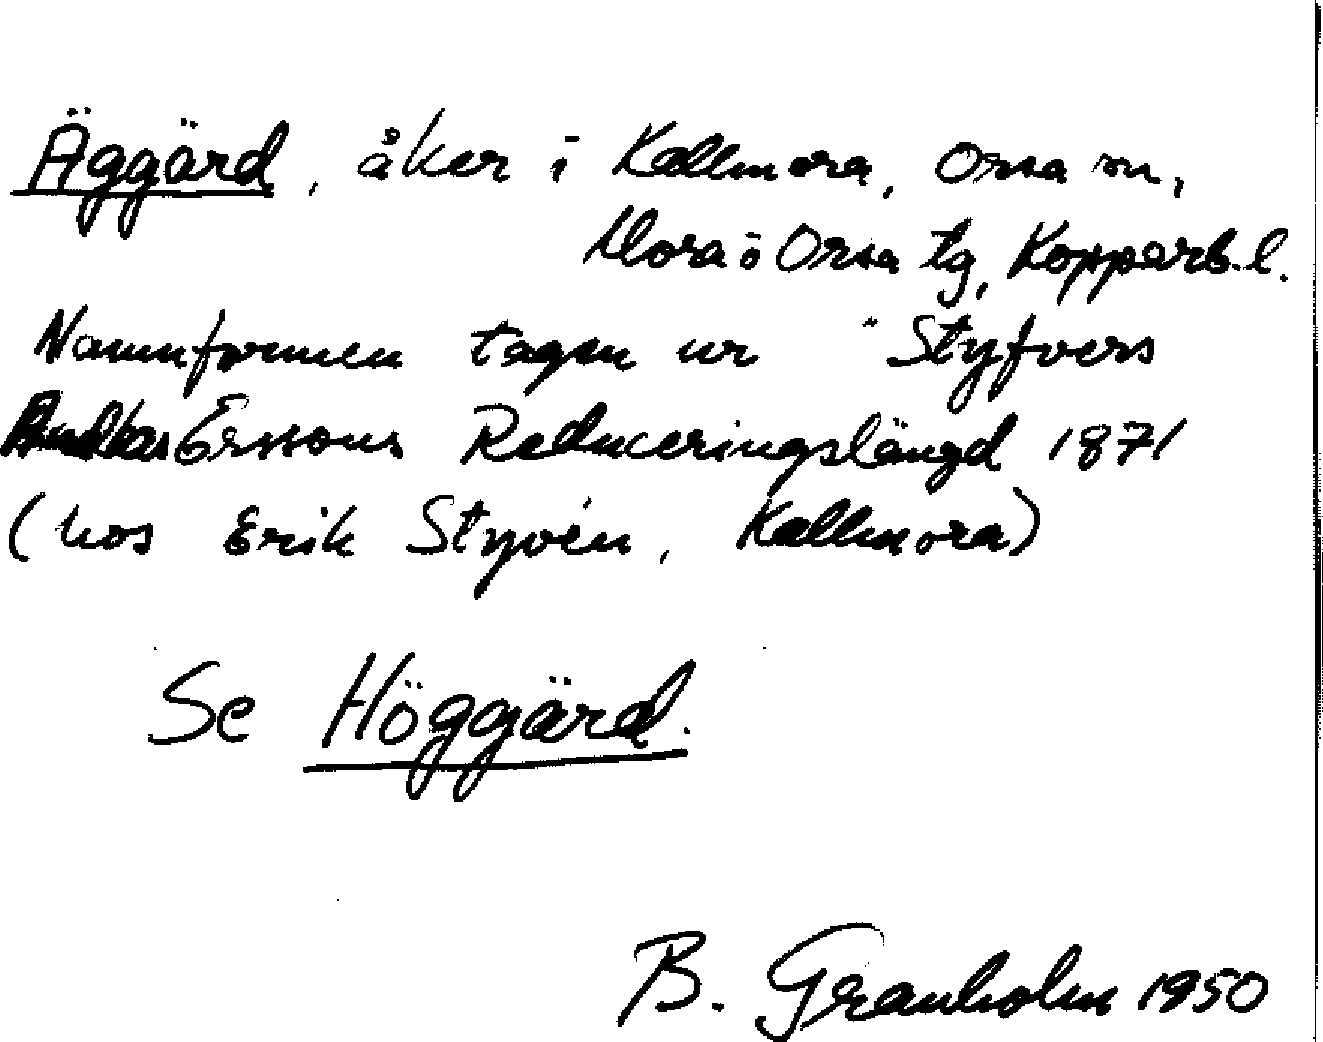 Äggärd, åker i Kallmora, Orsa sn,
Mora o Orsa tg, Kopparb. l.
Namnformen tagen ur "Styfvers
Erssons Reduceringslängd 1871
(hos Erik Styvén, Kallmora)
Se Höggärd.
B. Granholm 1950